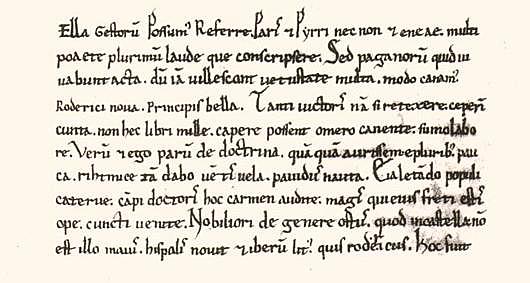 Ella gestorũ Possum' Referre. Paris ⁊ Pyrri nec non ⁊ eneae. multi
poaete plurimũ laude que conscripsere. Sed paganorũ quid iu
uabunt acta. dũ iã uillescant uetustate multa. modo canam'
Roderici noua. Principis bella. Tanti uictoris nã si retexere. ceperĩ
cunta. non hec libri mille. capere possent omero canente. sumo labo
re. Verũ ⁊ ego parũ de doctrina. quã quã aurissem e pluribus. pau
ca. rihtmice tam̃ dabo uẽtis uela. pauidus nauta. Eia letãdo populi
caterue. cãpi doctoris hoc carmen audite. magis qui eius freti estis
ope. cuncti uenite. Nobiliori de genere ortus. quod in castella nõ
est illo maius. hispalis nouit ⁊ iberũ litus quis rodericus. Hoc fuit